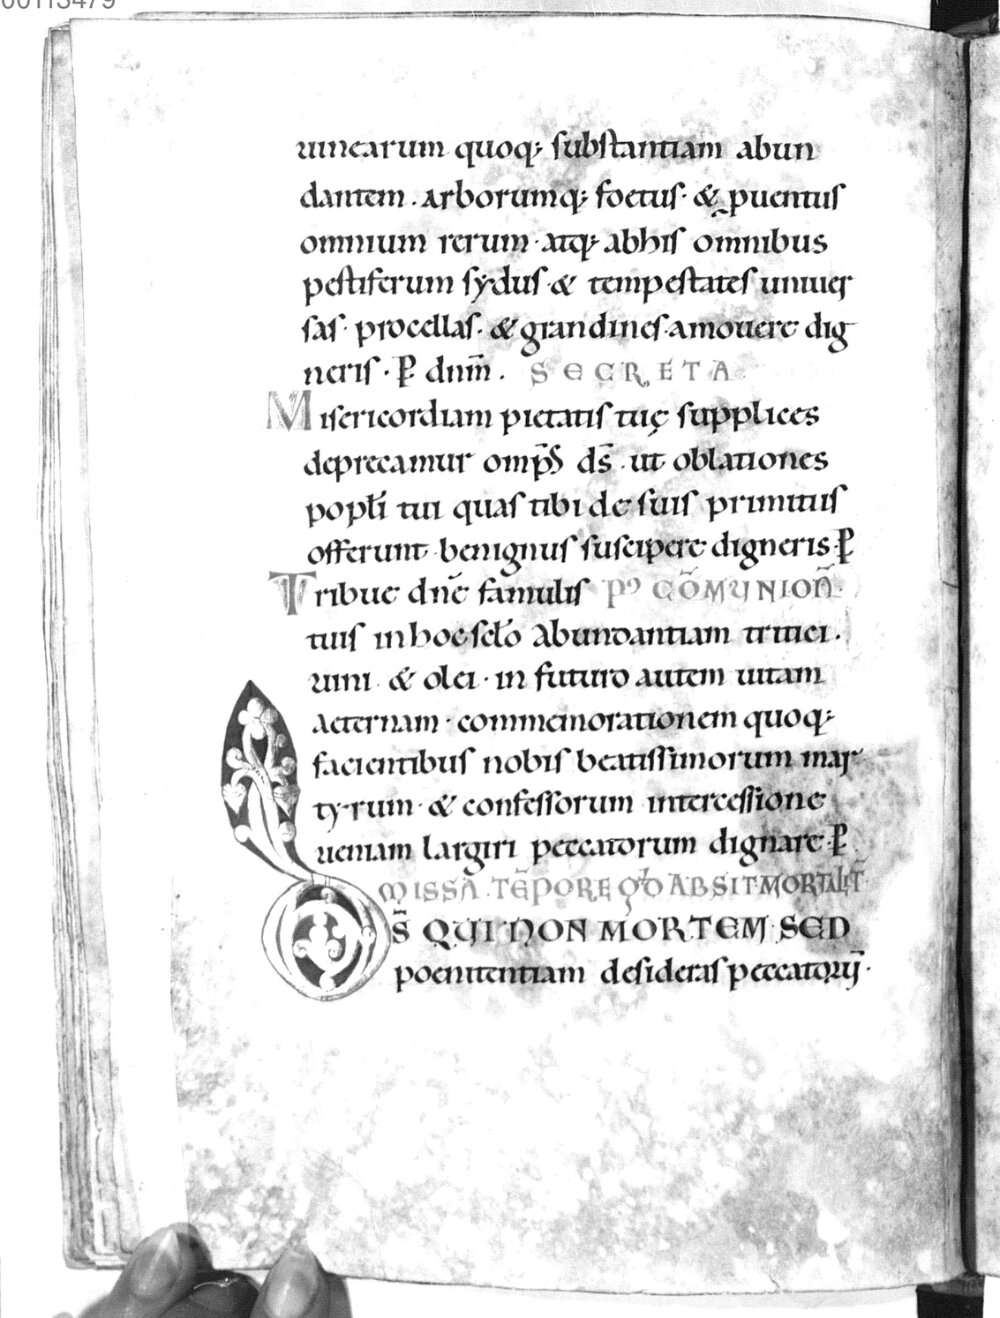 00113479
uinearum quoq; substantiam abun
dantem . arborumq; foetus · & puentus
omnium rerum · atq; abhis omnibus
pestiferum sydus · & tempestates uniuer
sas · procellas · & grandines · amouere dig
neris · P dnm̄ . SECRETA
Misericordiam pietatis tuę supplices
deprecamur omp̄s ds̄ . ut oblationes
popłi tui quas tibi de suis primitiis
offerunt · benignus suscipere digneris · P
Tribue dn̄e famulis Pꝰ CŌMUNIOÑ ·
tuis in hoc scło abundantiam tritici .
uini & olei · in futuro autem uitam
aeternam · commemorationem quoq;
facientibus nobis beatissimorum mar
tyrum · & confessorum intercessione
ueniam largiri peccatorum dignare · P
MISSA . TĒPORE qđ ABSIT · MORTALIT̄
Ds̄ QUI NON MORTEM · SED
poenitentiam desideras peccatorū ·